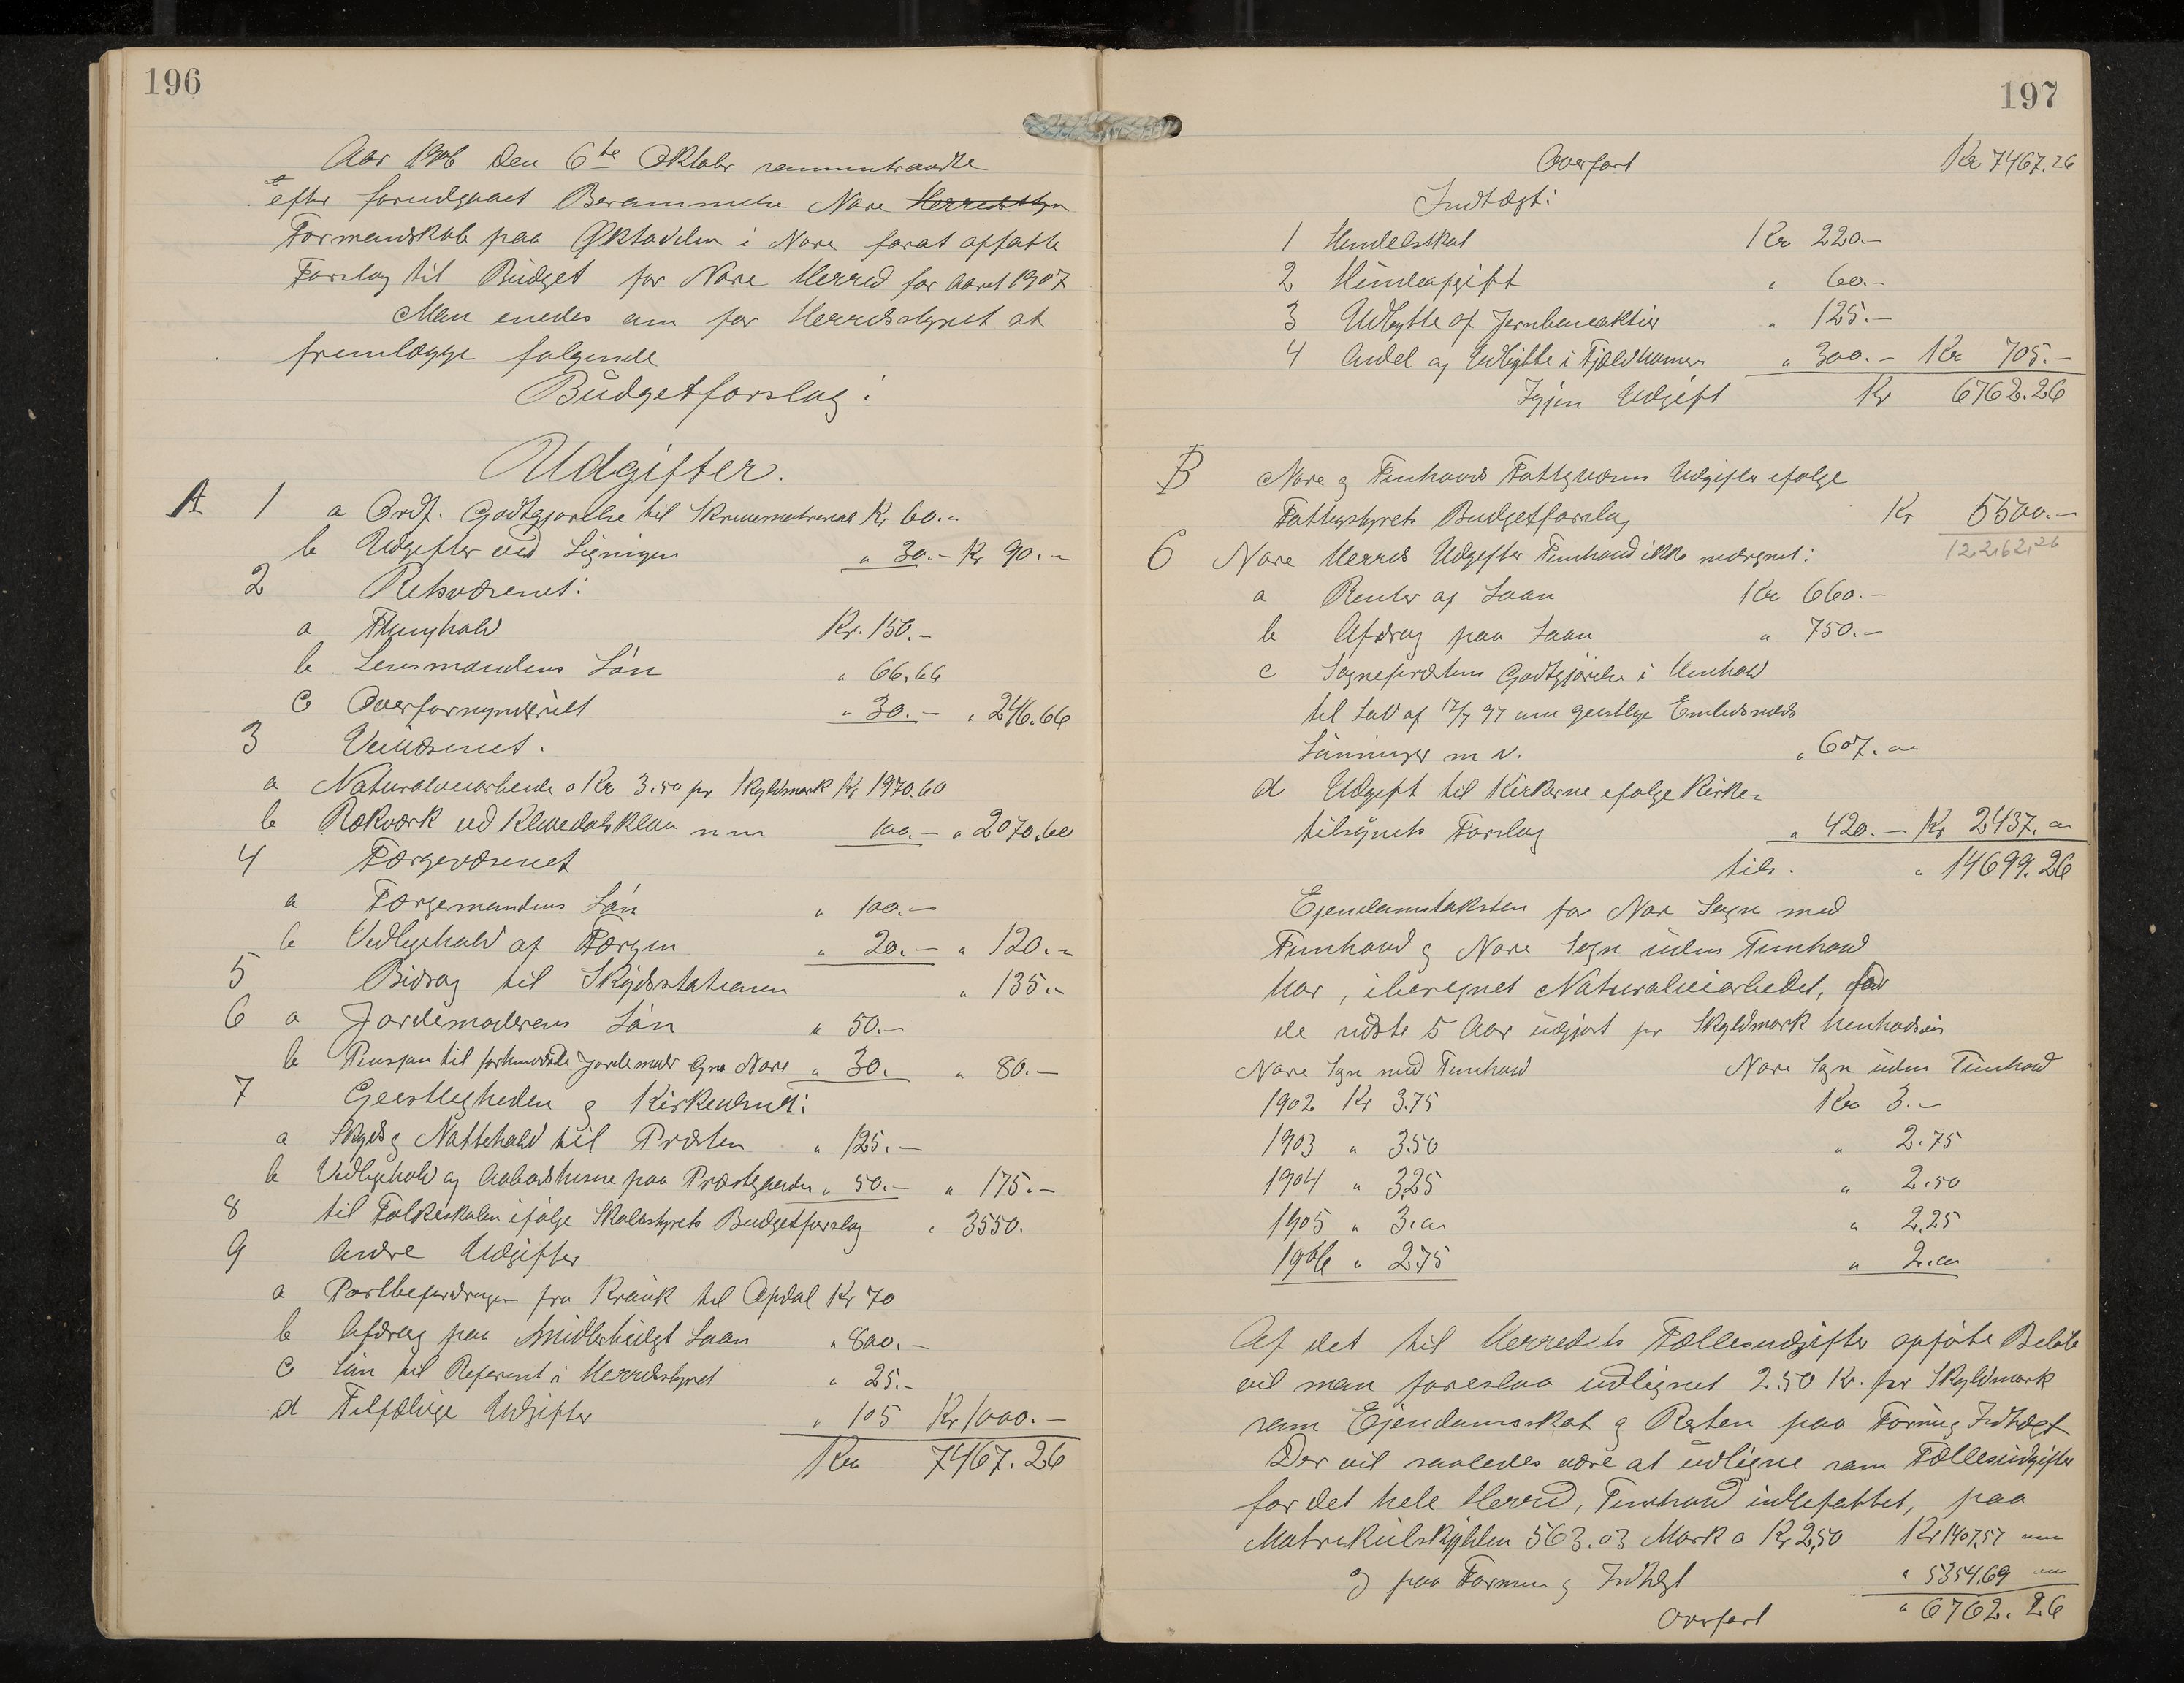 196
Aar 1906 den 6te Oktober sammentraadte
efter forudgaaet Berammelse Nore Herredsstyre
Formandskab paa Øktedalen i Nore forat opfatte
Forslag til Budget for Nore Herred for aaret 1907
Man enedes om for Herredsstyret at
fremlægge følgende
Budgetforslag:
Udgifter.
A 1 a Ordf. Godtgjørelse til Skrivematerial Kr 60.-
b Udgifter ved Ligningen " 30.- Kr 90.-
2 Retsvæsenet:
a Thinghold Kr. 150.-
b Lensmandens Løn " 66,66
c Overformynderiet " 30.- " 246.66
3 Veivæsenet.
a Naturalveiarbeide a Kr 3.50 pr Skyldmark Kr 1970.60
b Rækværk ved 100.- " 2070.60
4 Færgevæsenet
a Færgemandens Løn " 100.-
b Vedligehold af Færgen " 20.- " 120.-
5 Bidrag til Skydsstationen " 135.-
6 a Jordemoderens Løn " 50.-
b Pension til forhenværende Jordemoder Gro Nore " 30. " 80.-
7 Geistligheden & Kirkevæsenet:
a Skyds & Nattehold til Præsten " 125.-
b Vedligehold og Aabodshusene paa Præstgaarden " 50.- " 175.-
8 til Folkeskolen ifølge Skolestyrets Budgetforslag " 3550.
9 Andre Udgifter
a Postbefordringen fra Kravik til Opdal Kr 70
b Afdrag paa Midlertidigt Laan " 800.-
c Løn til Referent i Herredsstyret " 25.-
d Tilfældige Udgifter " 105 Kr 1000.-
Kr 7467.26
197
Overført Kr 7467.26
Indtægt:
1 Handelsskat Kr 220.-
2 Hundeafgift " 60.-
3 Udbytte af Jernbaneaktier " 125.-
4 Andel og Udbytte i Fjeldhamar " 300.- Kr 705.-
Igjen Udgift Kr 6762.26
B Nore & Tunhovds Fattigvæsens Udgifter ifølge
Fattigstyrets Budgetforslag Kr 5500.-
12262,26
6 Nore Herreds Udgifter Tunhovd ikke medregnet:
a Renter af Laan Kr 660.-
b Afdrag paa Laan " 750.-
c Sognepræstens Godtgjørelse i Henhold
til Lov af 17/7 97 om geistlige Embedsmænds
Lønninger m v. " 607. oo
d Udgift til Kirkerne ifølge Kirke-
tilsynets Forslag " 420.- Kr 2437. oo
tils. " 14699.26
Ejendomsskatten for Nore Sogn med
Tunhovd & Nore Sogn uden Tunhovd
har, iberegnet Naturalveiarbeidet, for
de sidste 5 Aar udgjort pr Skyldmark henholdsvis
Nore Sogn med Tunhovd Nore Sogn uden Tunhovd
1902 Kr 3.75 Kr 3.-
1903 " 3.50 " 2.75
1904 " 3.25 " 2.50
1905 " 3.oo " 2.25
1906 " 2.75 " 2.oo
Af det til Herredets Fællesudgifter opførte Beløb
vil man foreslaa udlignet 2.50 Kr. pr Skyldmark
som Ejendomsskat & Resten paa Formue & Indtægt
Der vil saaledes være at udligne som Fællesudgifter
for det hele Herred, Tunhovd indbefattet, paa
Matrikulskylden 563.03 Mark a Kr 2,50 Kr 1407,57
& paa Formue & Indtægt " 5354,69
Overført " 6762.26